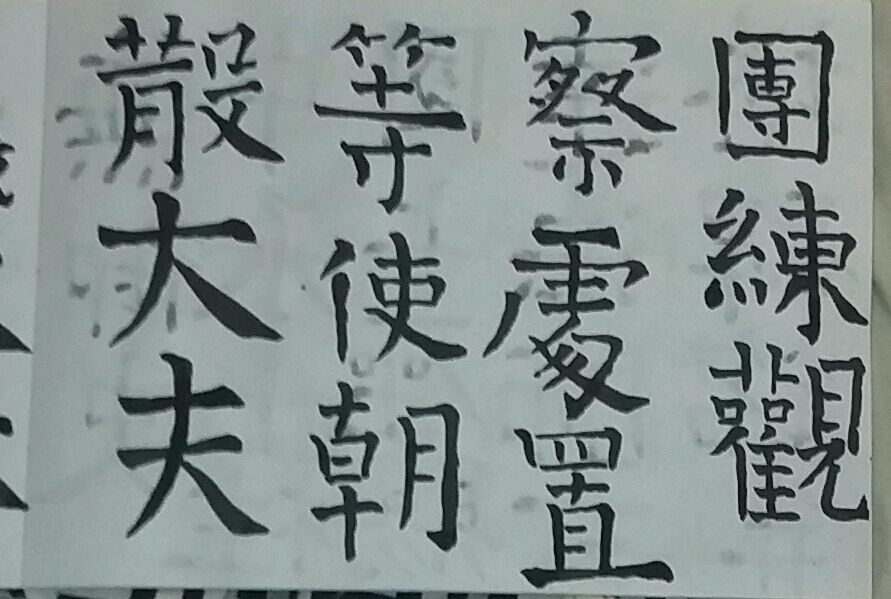 團練觀
察處置
等使朝
散大夫